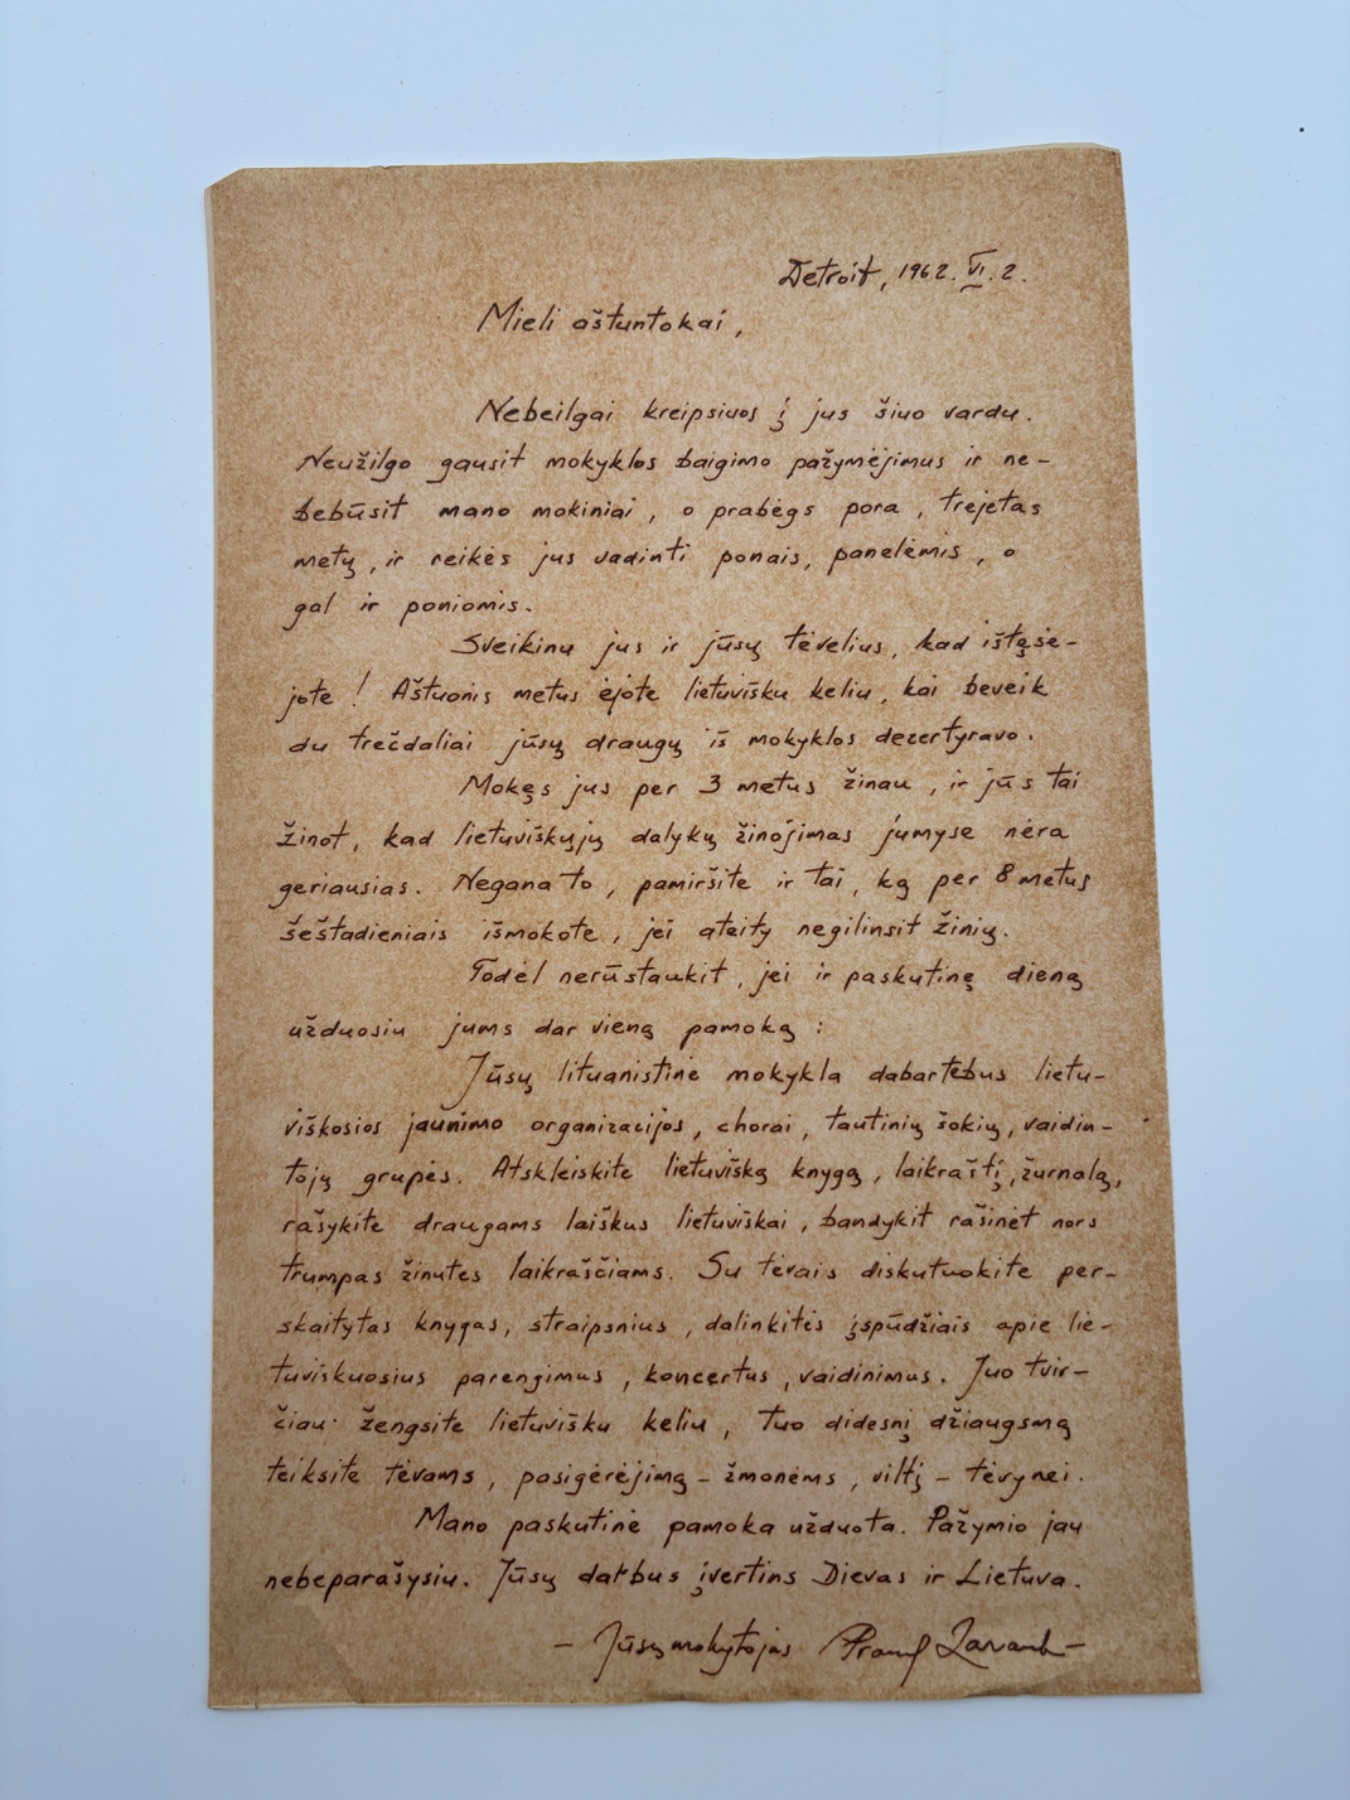 Detroit, 1962.VI.2.
Mieli aštuntokai,
Nebeilgai kreipsiuos į jus šiuo vardu.
Neužilgo gausit mokyklos baigimo pažymėjimus ir ne-
bebūsit mano mokiniai, o prabėgs pora, trejetas
metų, ir reikės jus vadinti ponais, panelėmis, o
gal ir poniomis.
Sveikinu jus ir jūsų tėvelius, kad ištęsė-
jote! Aštuonis metus ėjote lietuvišku keliu, kai beveik
du trečdaliai jūsų draugų iš mokyklos dezertyravo.
Mokęs jus per 3 metus žinau, ir jūs tai
žinot, kad lietuviškųjų dalykų žinojimas jumyse nėra
geriausias. Negana to, pamiršite ir tai, ką per 8 metus
šeštadieniais išmokote, jei ateity negilinsit žinių.
Todėl nerūstaukit, jei ir paskutinę dieną
užduosiu jums dar vieną pamoką:
Jūsų lituanistinė mokykla dabartebus lietu-
viškosios jaunimo organizacijos, chorai, tautinių šokių, vaidin-
tojų grupės. Atskleiskite lietuvišką knygą, laikraštį, žurnalą,
rašykite draugams laiškus lietuviškai, bandykit rašinėt nors
trumpas žinutes laikraščiams. Su tėvais diskutuokite per-
skaitytas knygas, straipsnius, dalinkitės įspūdžiais apie lie-
tuviškuosius parengimus, koncertus, vaidinimus. Juo tvir-
čiau žengsite lietuvišku keliu, tuo didesnį džiaugsmą
teiksite tėvams, pasigėrėjimą – žmonėms, viltį – tėvynei.
Mano paskutinė pamoka užduota. Pažymio jau
nebeparašysiu. Jūsų darbus įvertins Dievas ir Lietuva.
– Jūsų mokytojas